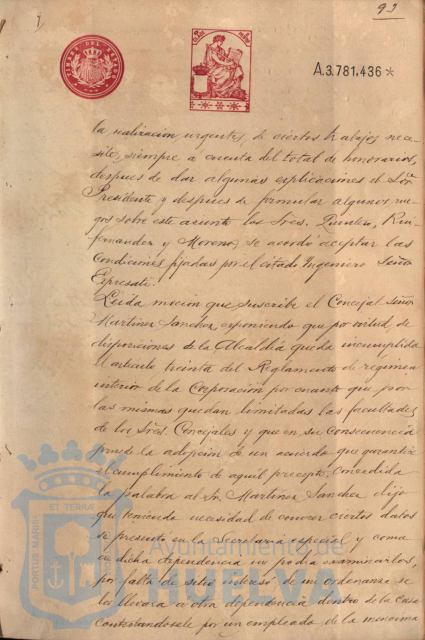 92
TIMBRE DEL ESTADO
A.3.781.436*
la realizacion urgentes, de ciertos trabajos nece-
site, siempre a cuenta del total de honorarios,
despues de dar algunas esplicaciones el Sor.
Presidente y despues de formular algunos rue-
gos sobre este asunto los Sres. Quintero, Ruiz
Fernandez y Moreno, se acordó aceptar las
condiciones fijadas por el citado Ingeniero Señor
Leida mocion que suscribe el Concejal Señor
Martinez Sanchez esponiendo que por virtud de
disposiciones de la Alcaldia queda incumplido
el articulo treinta del Reglamento de regimen
interior de la Corporacion por cuanto que por
las mismas quedan limitadas las facultades
de los Sres. Concejales y que en su consecuencia
procede la adopcion de un acuerdo que garantice
el cumplimiento de aquel precepto, concedida
la palabra al Sr. Martinez Sanchez dijo
que teniendo necesidad de conocer ciertos datos
se presentó en la Secretaria especial y como
en dicha dependencia no podia examinarlos,
por falta de sitio interesó de un ordenanza se
los llevara a otra dependencia dentro de la casa
contestandosele por un empleado de la misma
PORTUS MARIS ET TERRAE
Ayuntamiento de
HUELVA